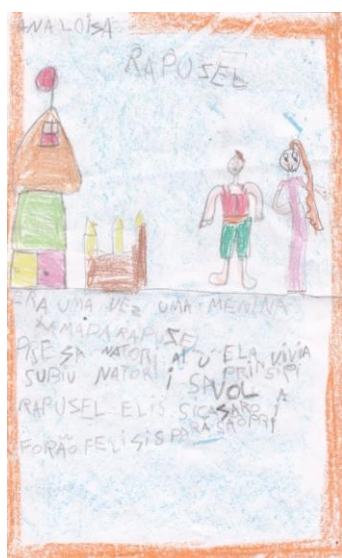 ANA LOISA
RAPUSEL
ERA UMA VEZ UMA MENINA
XAMADA RAPUSEL
PRESA NATORI AI U ELA VIVIA
SUBIU NATORI I SAVOL A PRINSIPI
RAPUSEL ELIS SICASARO I
FORÃO FELISIS PARA SAOPRI